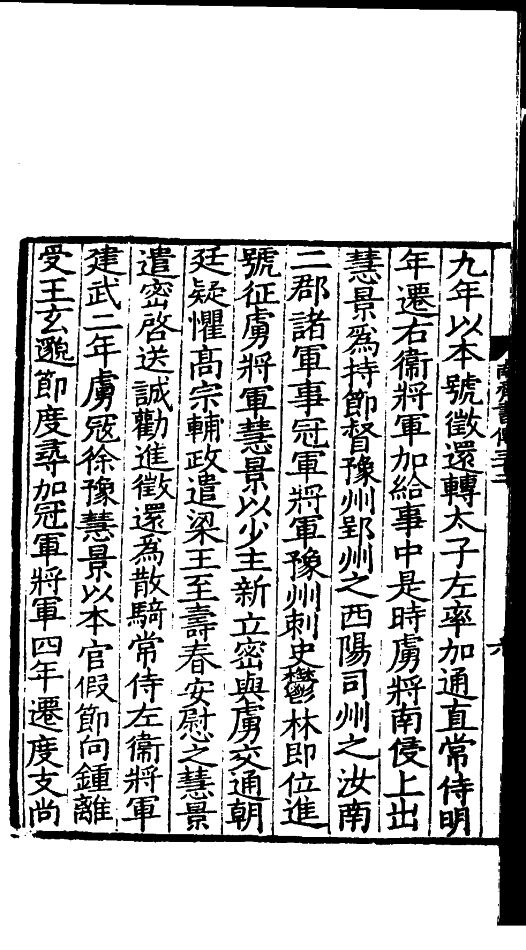 九年以本號徵還轉太子左率加通直常侍明
年遷右衞將軍加給事中是時虜將南侵上出
慧景爲持節督豫州郢州之西陽司州之汝南
二郡諸軍事冠軍將軍豫州刺史鬱林即位進
號征虜將軍慧景以少主新立密與虜交通朝
廷疑懼髙宗輔政遣梁王至壽春安慰之慧景
遣密啓送誠勸進徵還爲散騎常侍左衞將軍
建武二年虜寇徐豫慧景以本官假節向鍾離
受王玄邈節度尋加冠軍將軍四年遷度支尚